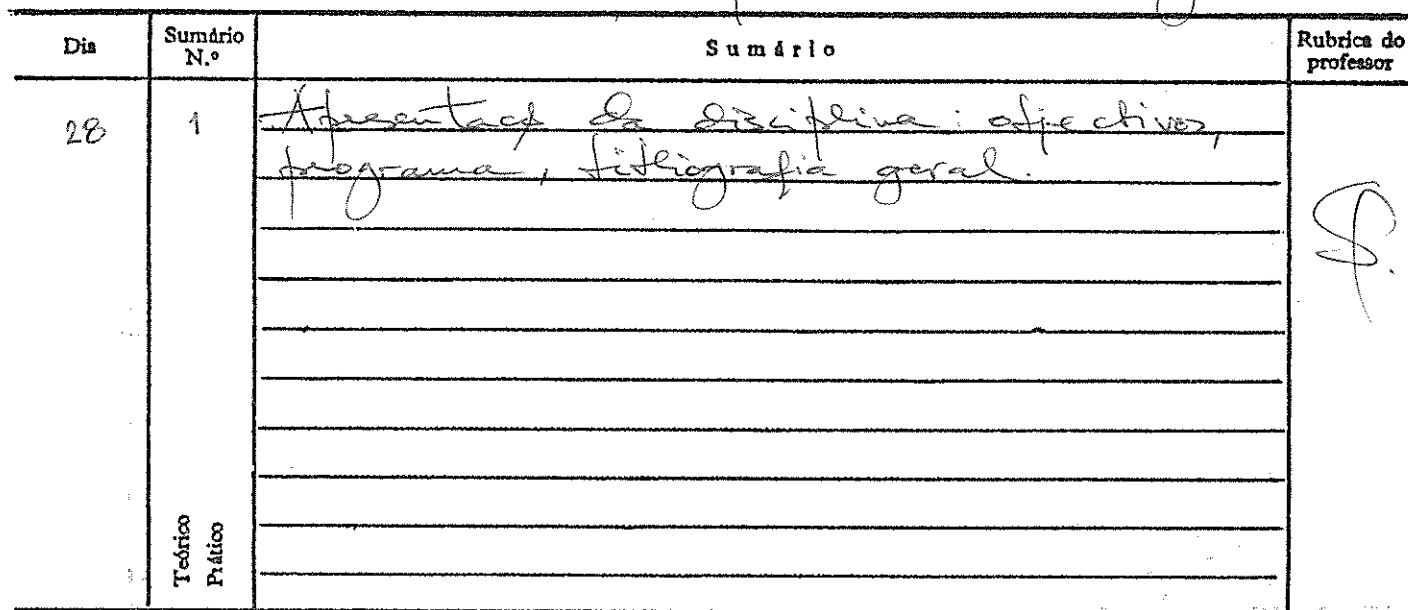 Dia
Sumário N.º
Sumário
Rubrica do professor
28
1
Apresentação da disciplina: objectivos,
programa, bibliografia geral.
Teórico
Prático